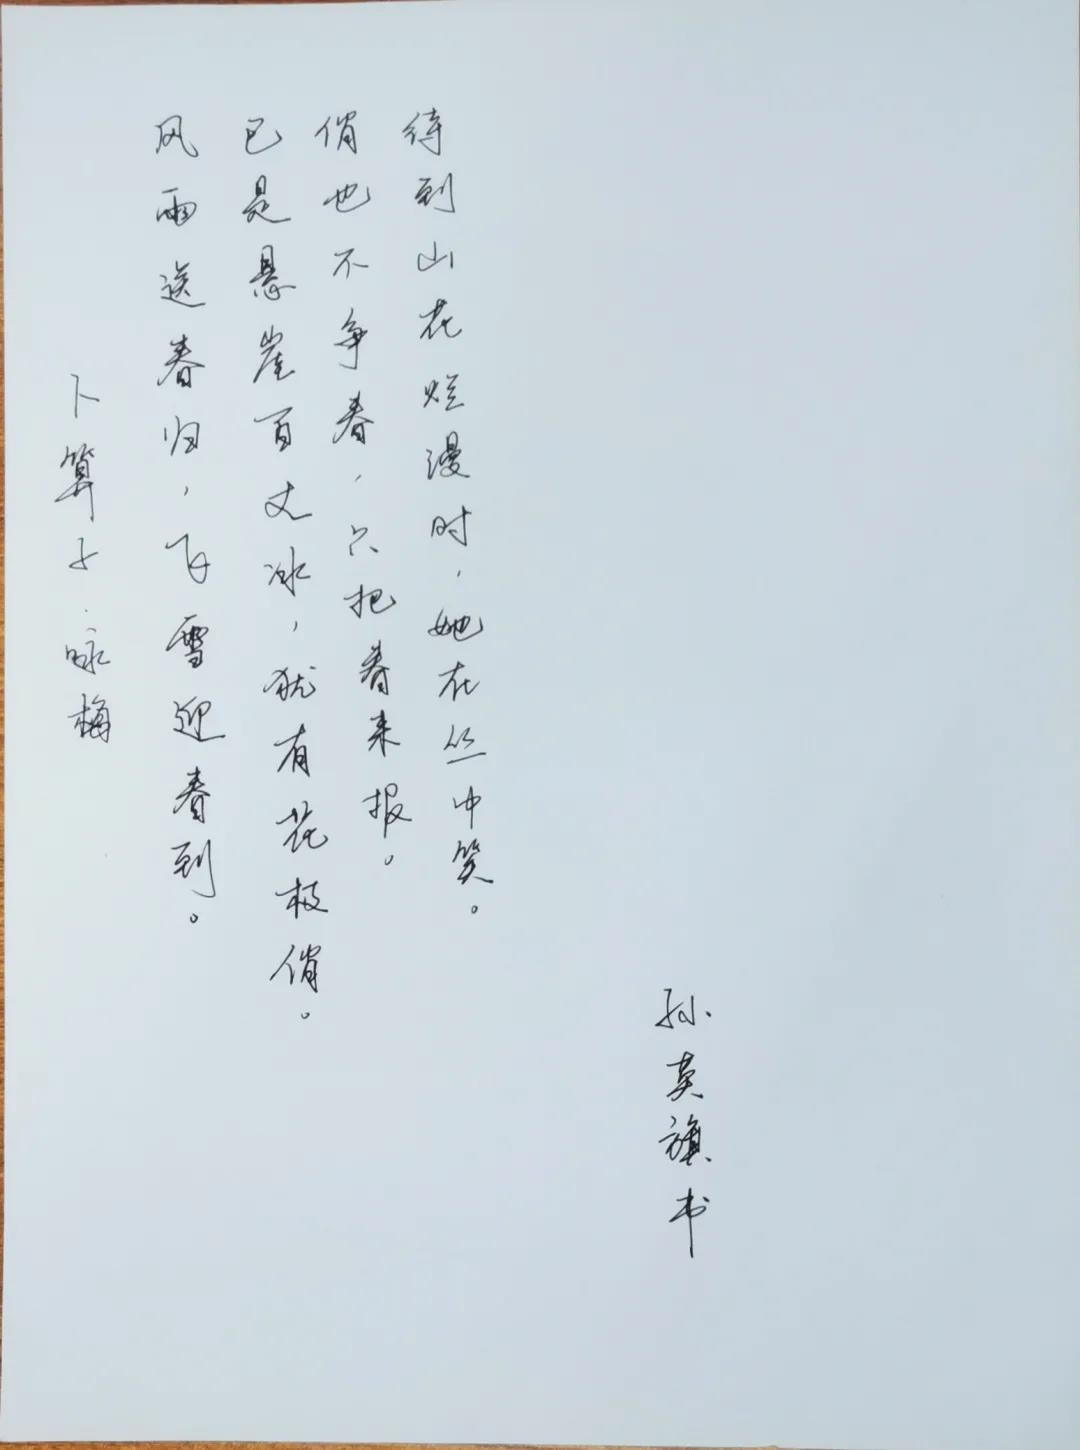 卜算子·咏梅
风雨送春归，飞雪迎春到。
已是悬崖百丈冰，犹有花枝俏。
俏也不争春，只把春来报。
待到山花烂漫时，她在丛中笑。
孙英旗书